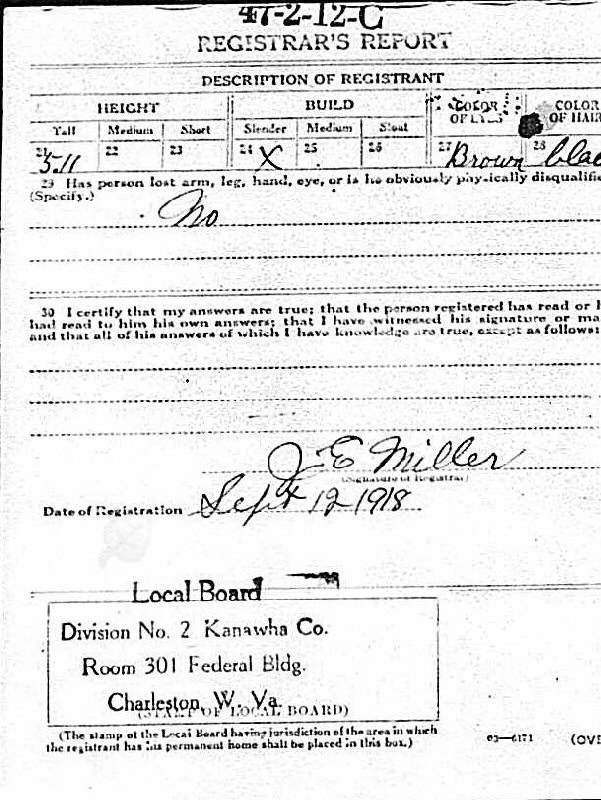 47-2-12-C
REGISTRAR'S REPORT
DESCRIPTION OF REGISTRANT
HEIGHT BUILD COLOR OF EYES COLOR OF HAIR
Tall Medium Short Slender Medium Stout
21 5.11 22 23 24 X 25 26 27 Brown 28 blac
29 Has person lost arm, leg, hand, eye, or is he obviously physically disqualifie
(Specify.)
No
30 I certify that my answers are true; that the person registered has read or h
had read to him his own answers; that I have witnessed his signature or ma
and that all of his answers of which I have knowledge are true, except as follows:
J E Miller
(Signature of Registrar)
Date of Registration Sept 12 1918
Local Board
Division No. 2 Kanawha Co.
Room 301 Federal Bldg.
Charleston, W. Va.
(STAMP OF LOCAL BOARD)
(The stamp of the Local Board having jurisdiction of the area in which
the registrant has his permanent home shall be placed in this box.)
03—6171 (OVE